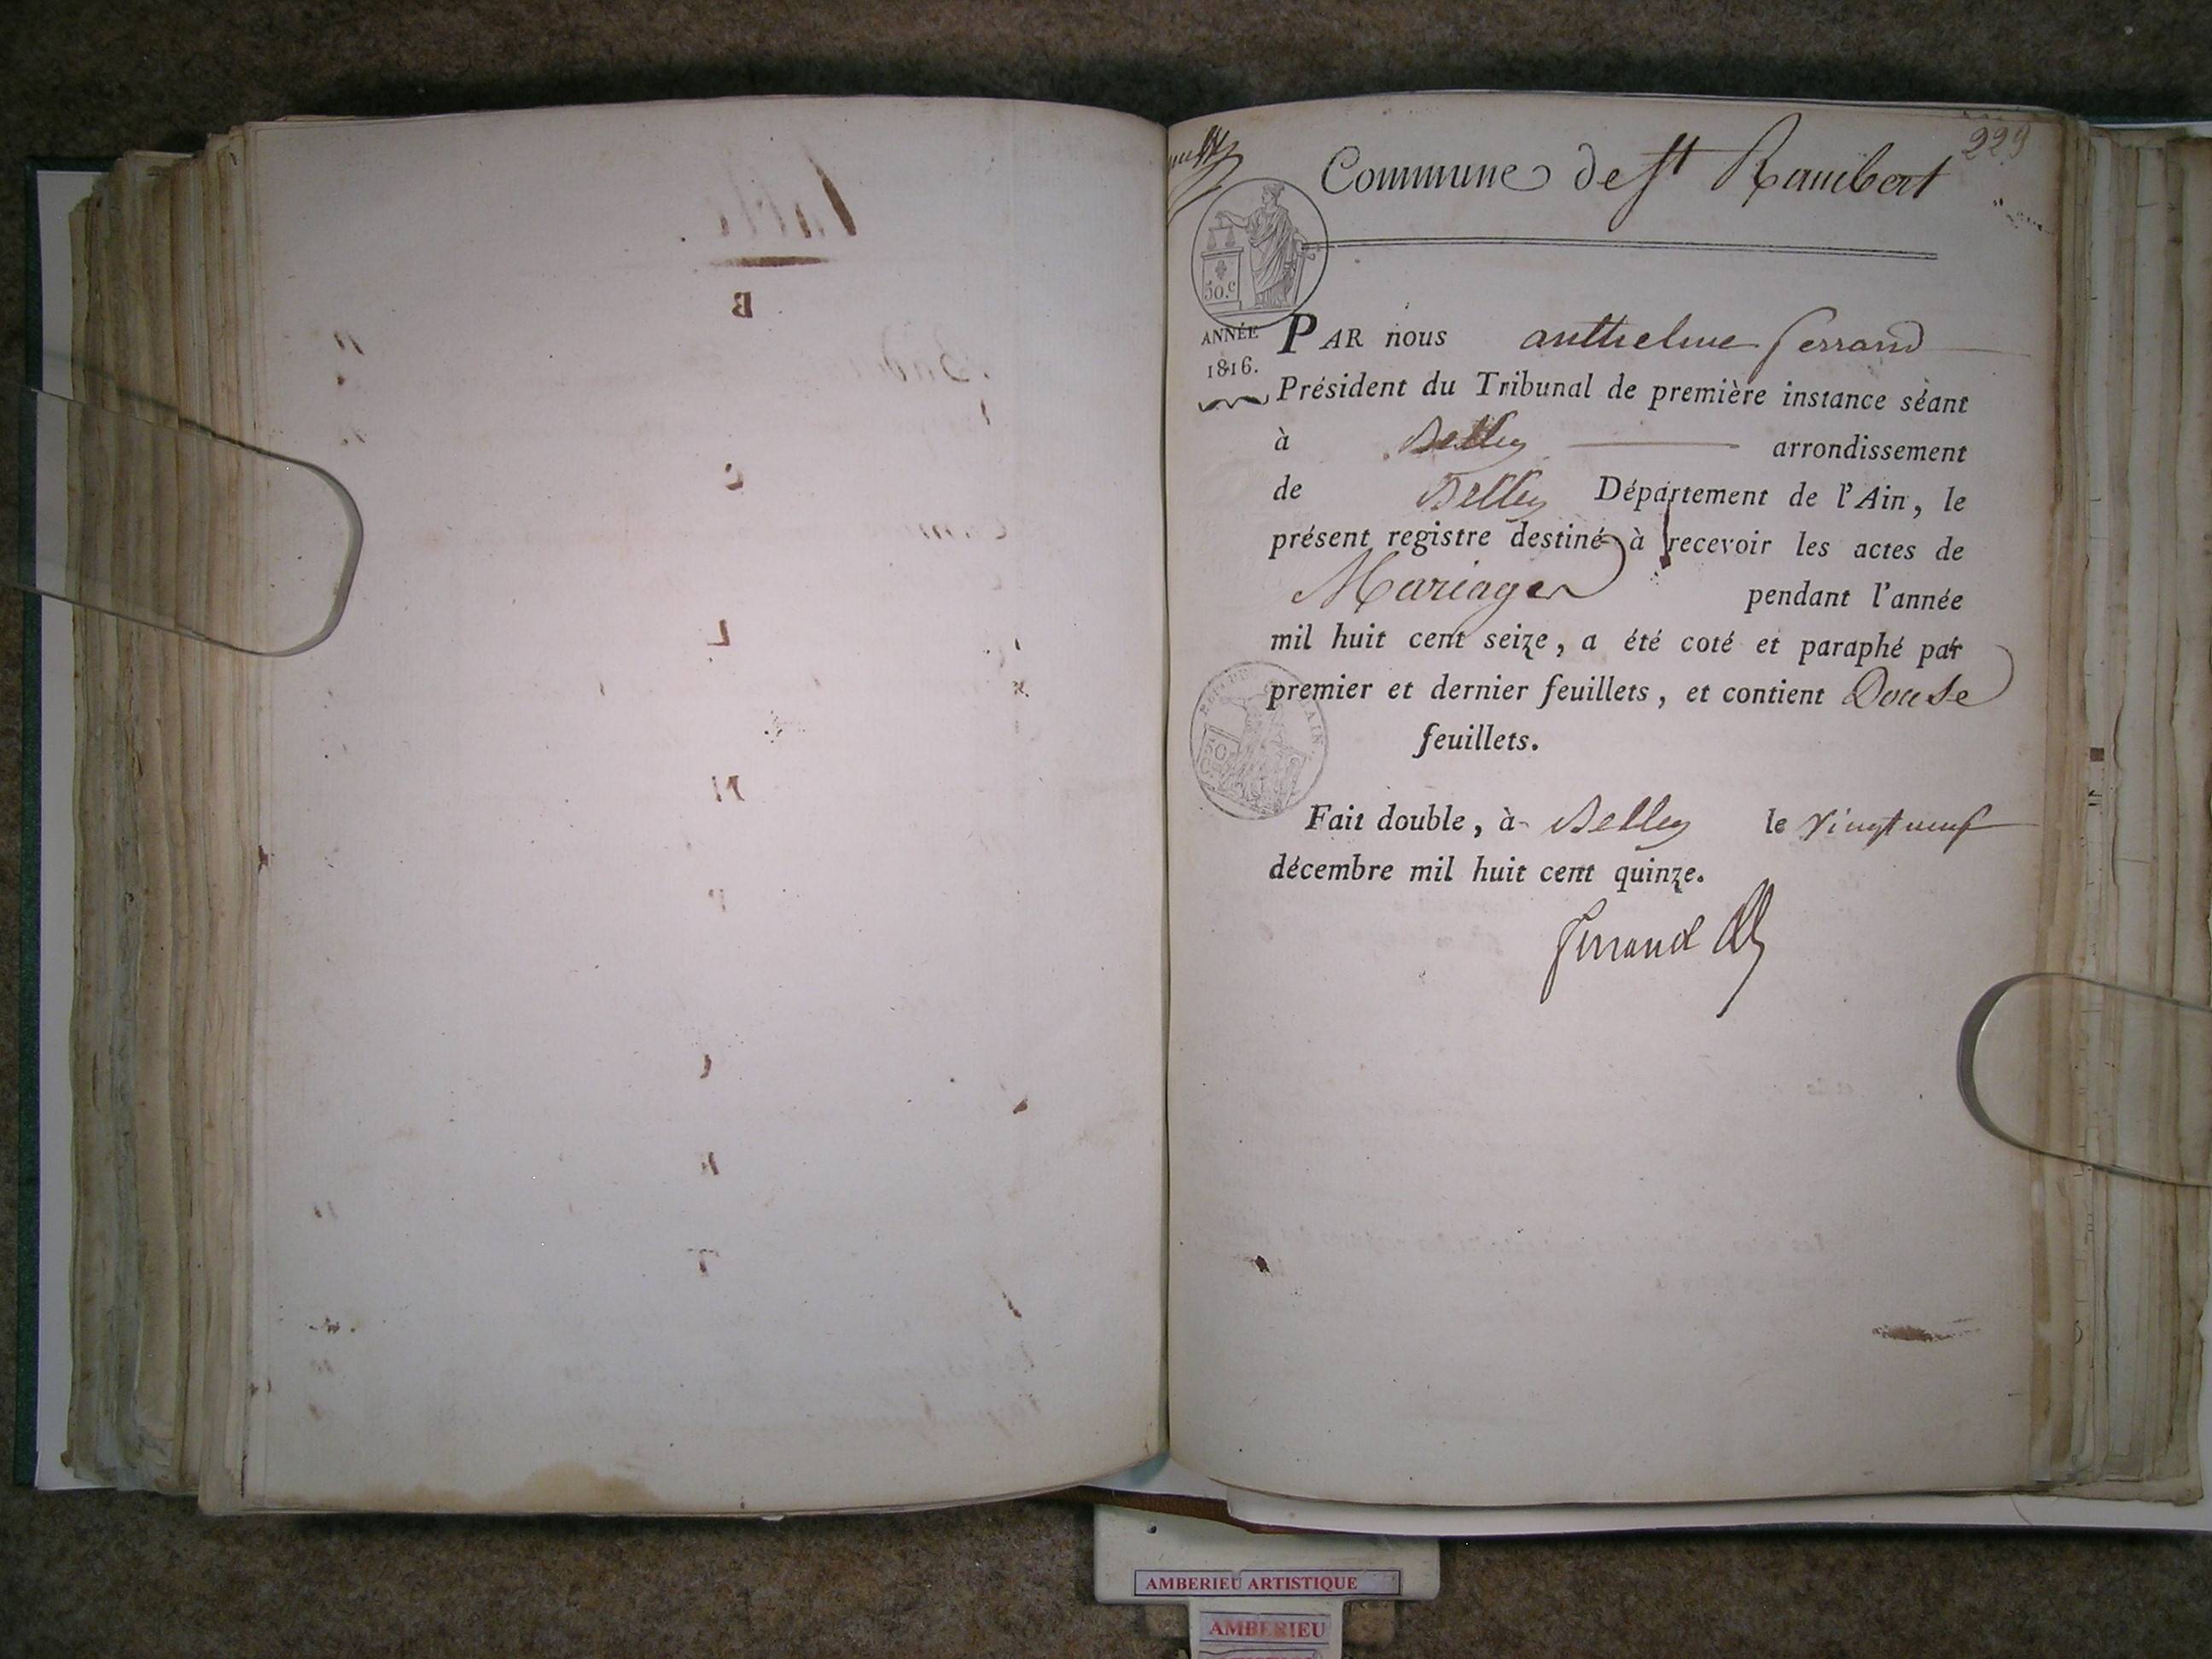 229
Commune de St Rambert
50.c
ANNÉE
1816.
PAR nous anthelme ferrand
Président du Tribunal de première instance séant
à Belley arrondissement
de Belley Département de l'Ain, le
présent registre destiné à recevoir les actes de
Mariages pendant l'année
mil huit cent seize, a été coté et paraphé par
premier et dernier feuillets, et contient Douse
feuillets.
Fait double, à Belley le vingt neuf
décembre mil huit cent quinze.
ferrand
B
C
L
N
P
T
AMBERIEU ARTISTIQUE
AMBERIEU